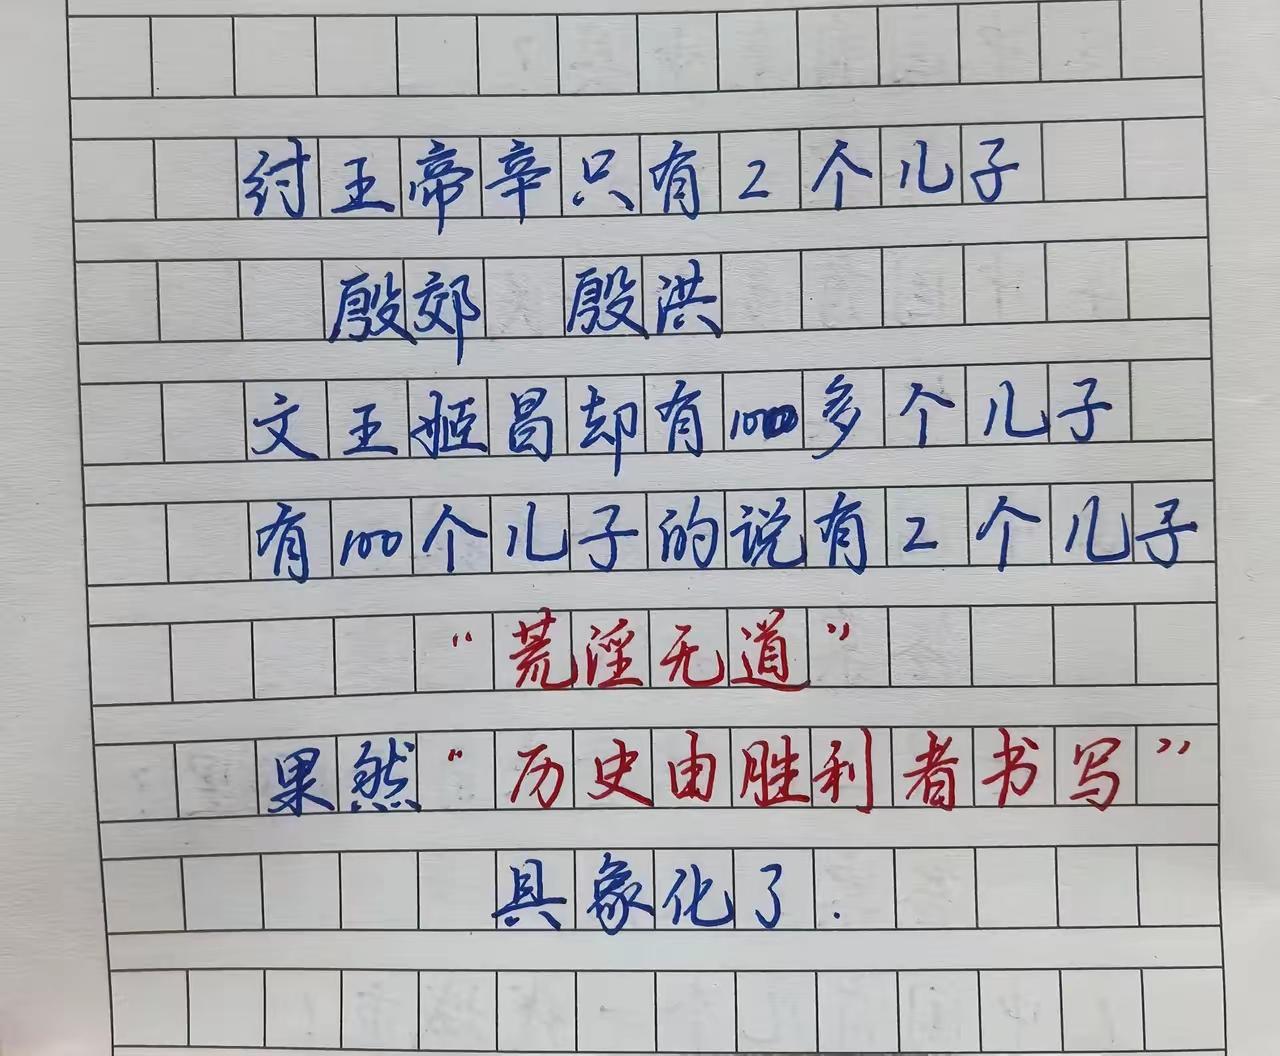 纣王帝辛只有2个儿子
殷郊 殷洪
文王姬昌却有100多个儿子
有100个儿子的说有2个儿子
“荒淫无道”
果然“历史由胜利者书写”
具象化了.